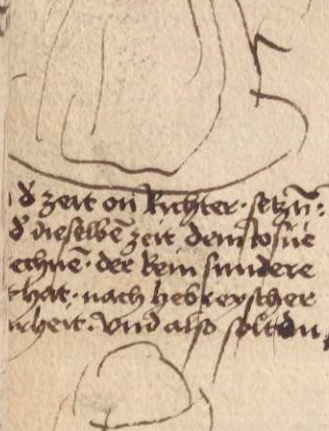 d' zeit on Richter · setzn̄ :
d' dieselbē zeit dem Josue
echnē · der kein sundere
that · nach hebreyscher
rheit. vnd also solt du